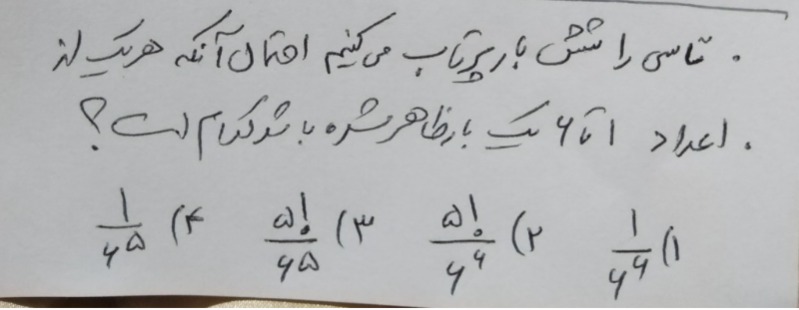 . تاسی را شش بار پرتاب می‌کنیم احتمال آنکه هر یک از
. اعداد ۱ تا ۶ یک بار ظاهر شده باشد کدام است؟
۱) ۱/۶^۶ ۲) ۵!/۶^۶ ۳) ۵!/۶^۵ ۴) ۱/۶^۵